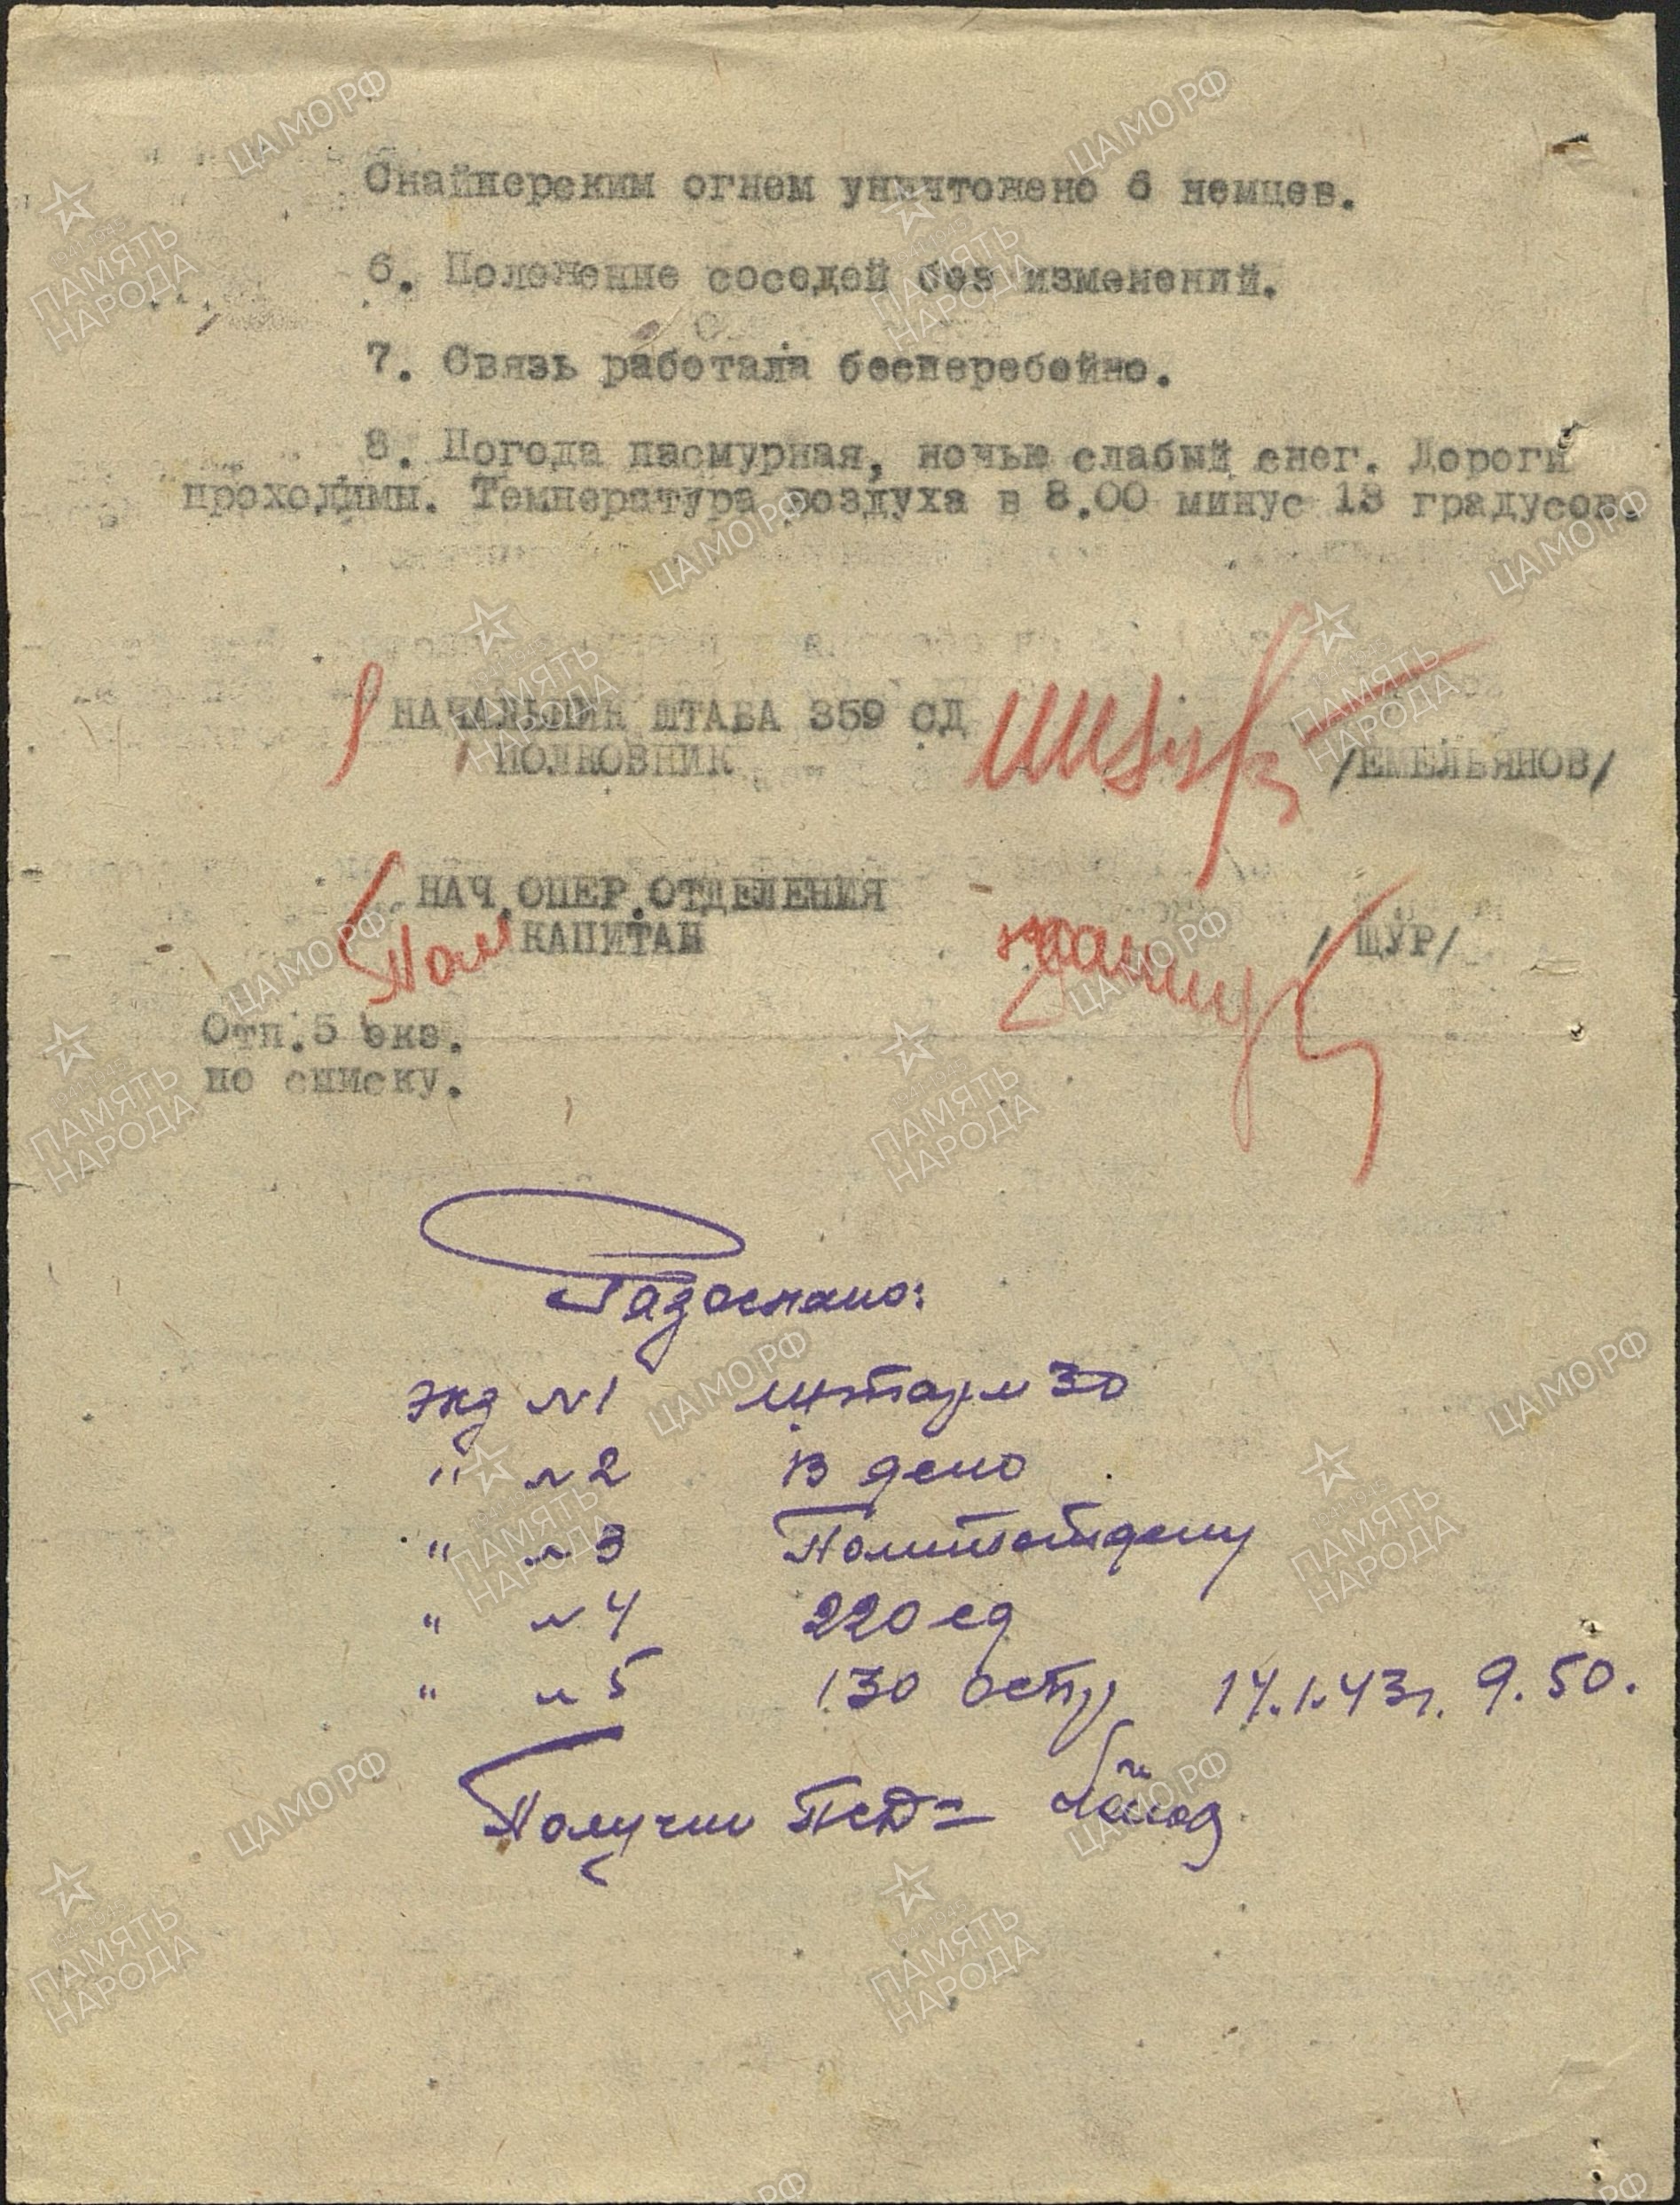 Снайперским огнем уничтожено 6 немцев.
6. Положение соседей без изменений.
7. Связь работала бесперебойно.
8. Погода пасмурная, ночью слабый снег. Дороги
проходимы. Температура воздуха в 8.00 минус 13 градусов.
НАЧАЛЬНИК ШТАБА 359 СД
ПОЛКОВНИК /ЕМЕЛЬЯНОВ/
НАЧ.ОПЕР.ОТДЕЛЕНИЯ
Пом КАПИТАН / ЩУР/
Отп.5 экз.
по списку.
Разослано:
экз №1 штарм 30
" №2 В дело
" №3 Политотделу
" №4 220 сд
" №5 130 14.1.43г. 9.50.
Получил
ЦА МО РФ
ПАМЯТЬ НАРОДА